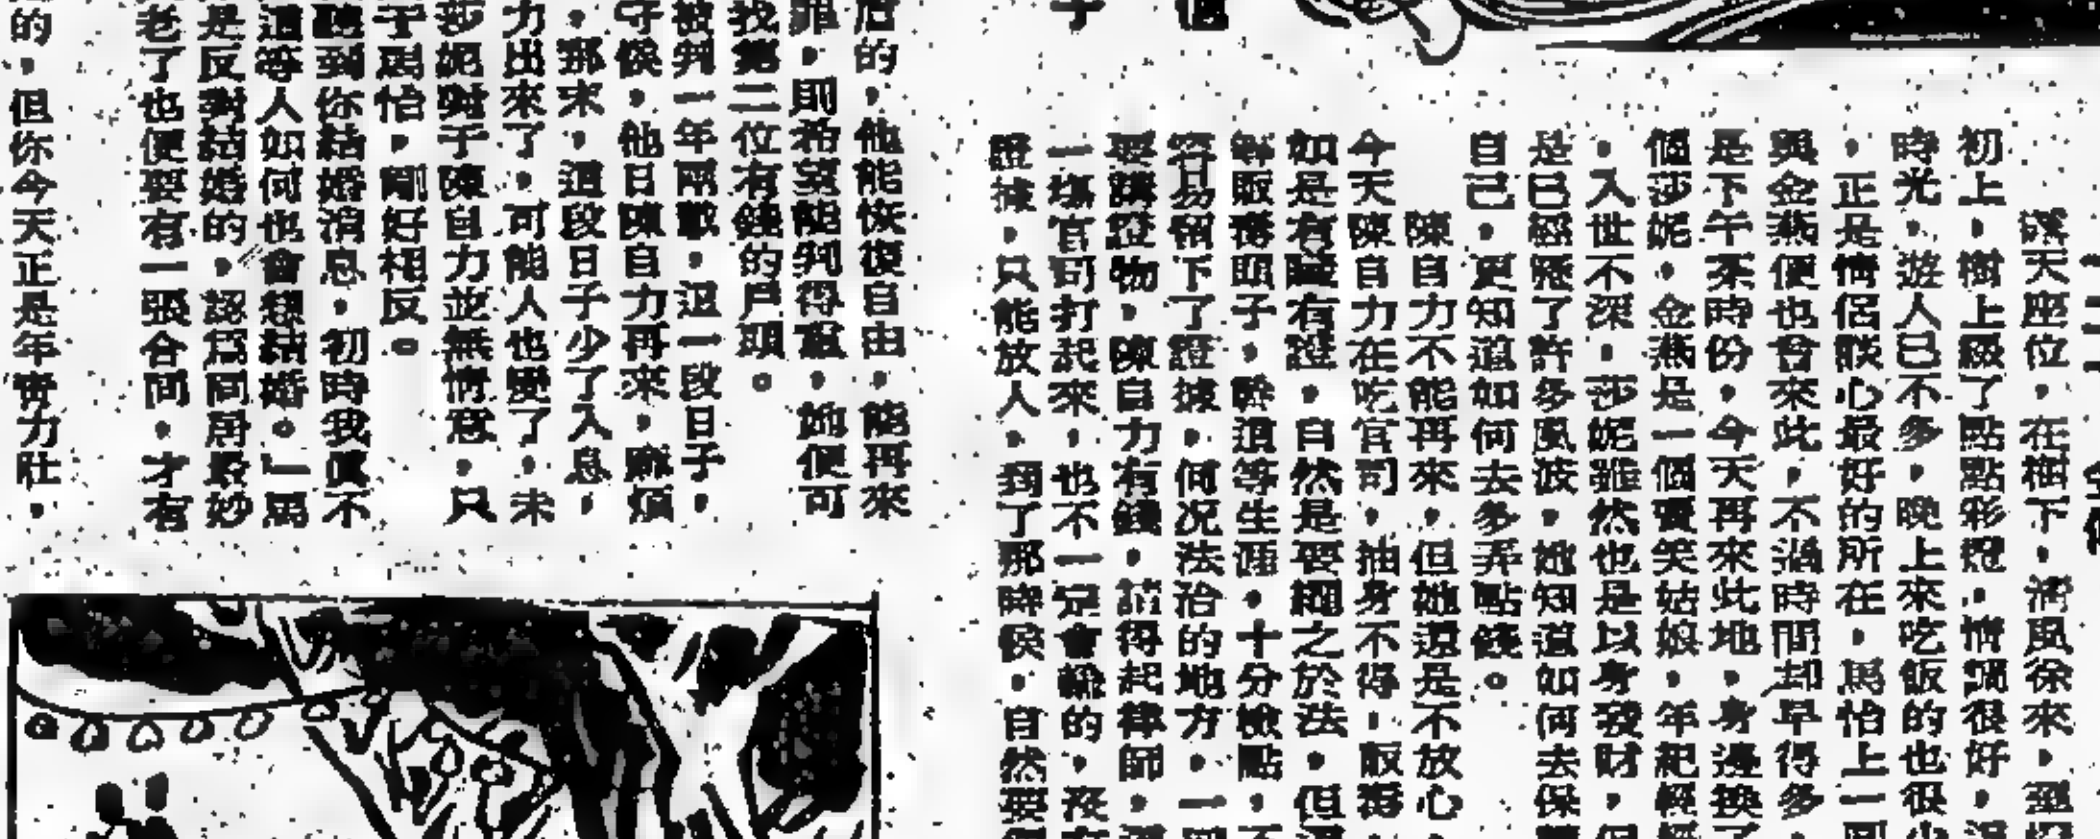 露天座位，在樹下，清風徐來，
初上，樹上綴了點點彩燈，情調很好，
時光，遊人已不多，晚上來吃飯的也很
，正是情侶談心最好的所在，馬怡上一
與金燕便也曾來此，不過時間却早得多，
是下午茶時份，今天再來此地，身邊換了
個莎妮，金燕是一個賣笑姑娘，年紀輕
，入世不深，莎妮雖然也是以身發財，但
是已經歷了許多風波，她知道如何去保
自己，更知道如何去多弄點錢。
陳自力不能再來，但她還是不放心，
今天陳自力在吃官司，抽身不得，販毒
如是有贓有證，自然是要繩之於法，但
幹販毒頭子，幹這等生涯，十分檢點，不
容易留下了證據，何况法治的地方，一
要講證物，陳自力有錢，請得起律師，
一塲官司打起來，也不一定會輸的，沒有
證據，只能放人，到了那時候，自然要
后的，他能恢復自由，能再來
罪，則希望能判得重，她便可
找第二位有錢的戶頭。
被判一年兩載，這一段日子，
守候，他日陳自力再來，麻煩
，那末，這段日子少了入息，
力出來了，可能人也變了，未
莎妮對于陳自力並無情意，只
于馬怡，剛好相反。
聽到你結婚消息，初時我眞不
這等人如何也會想結婚。」馬
是反對結婚的，認爲同居最妙
老了也便要有一張合同，才有
的，但你今天正是年靑力壯，